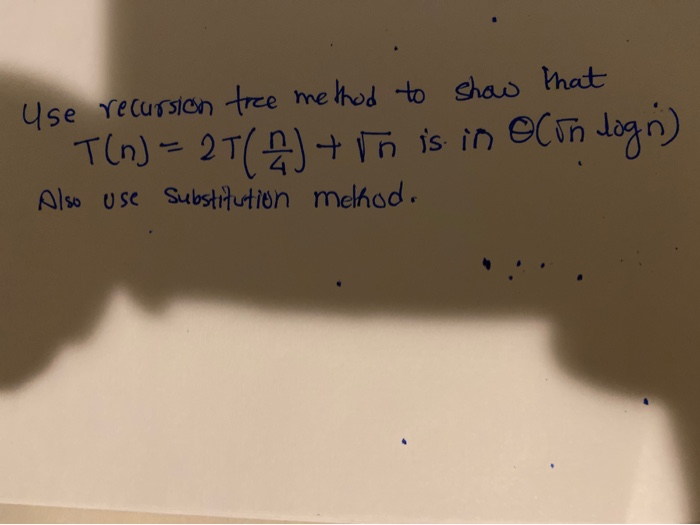 Use recursion tree method to show that
T(n) = 2T(n/4) + √n is in Θ(√n log n)
Also use Substitution method.